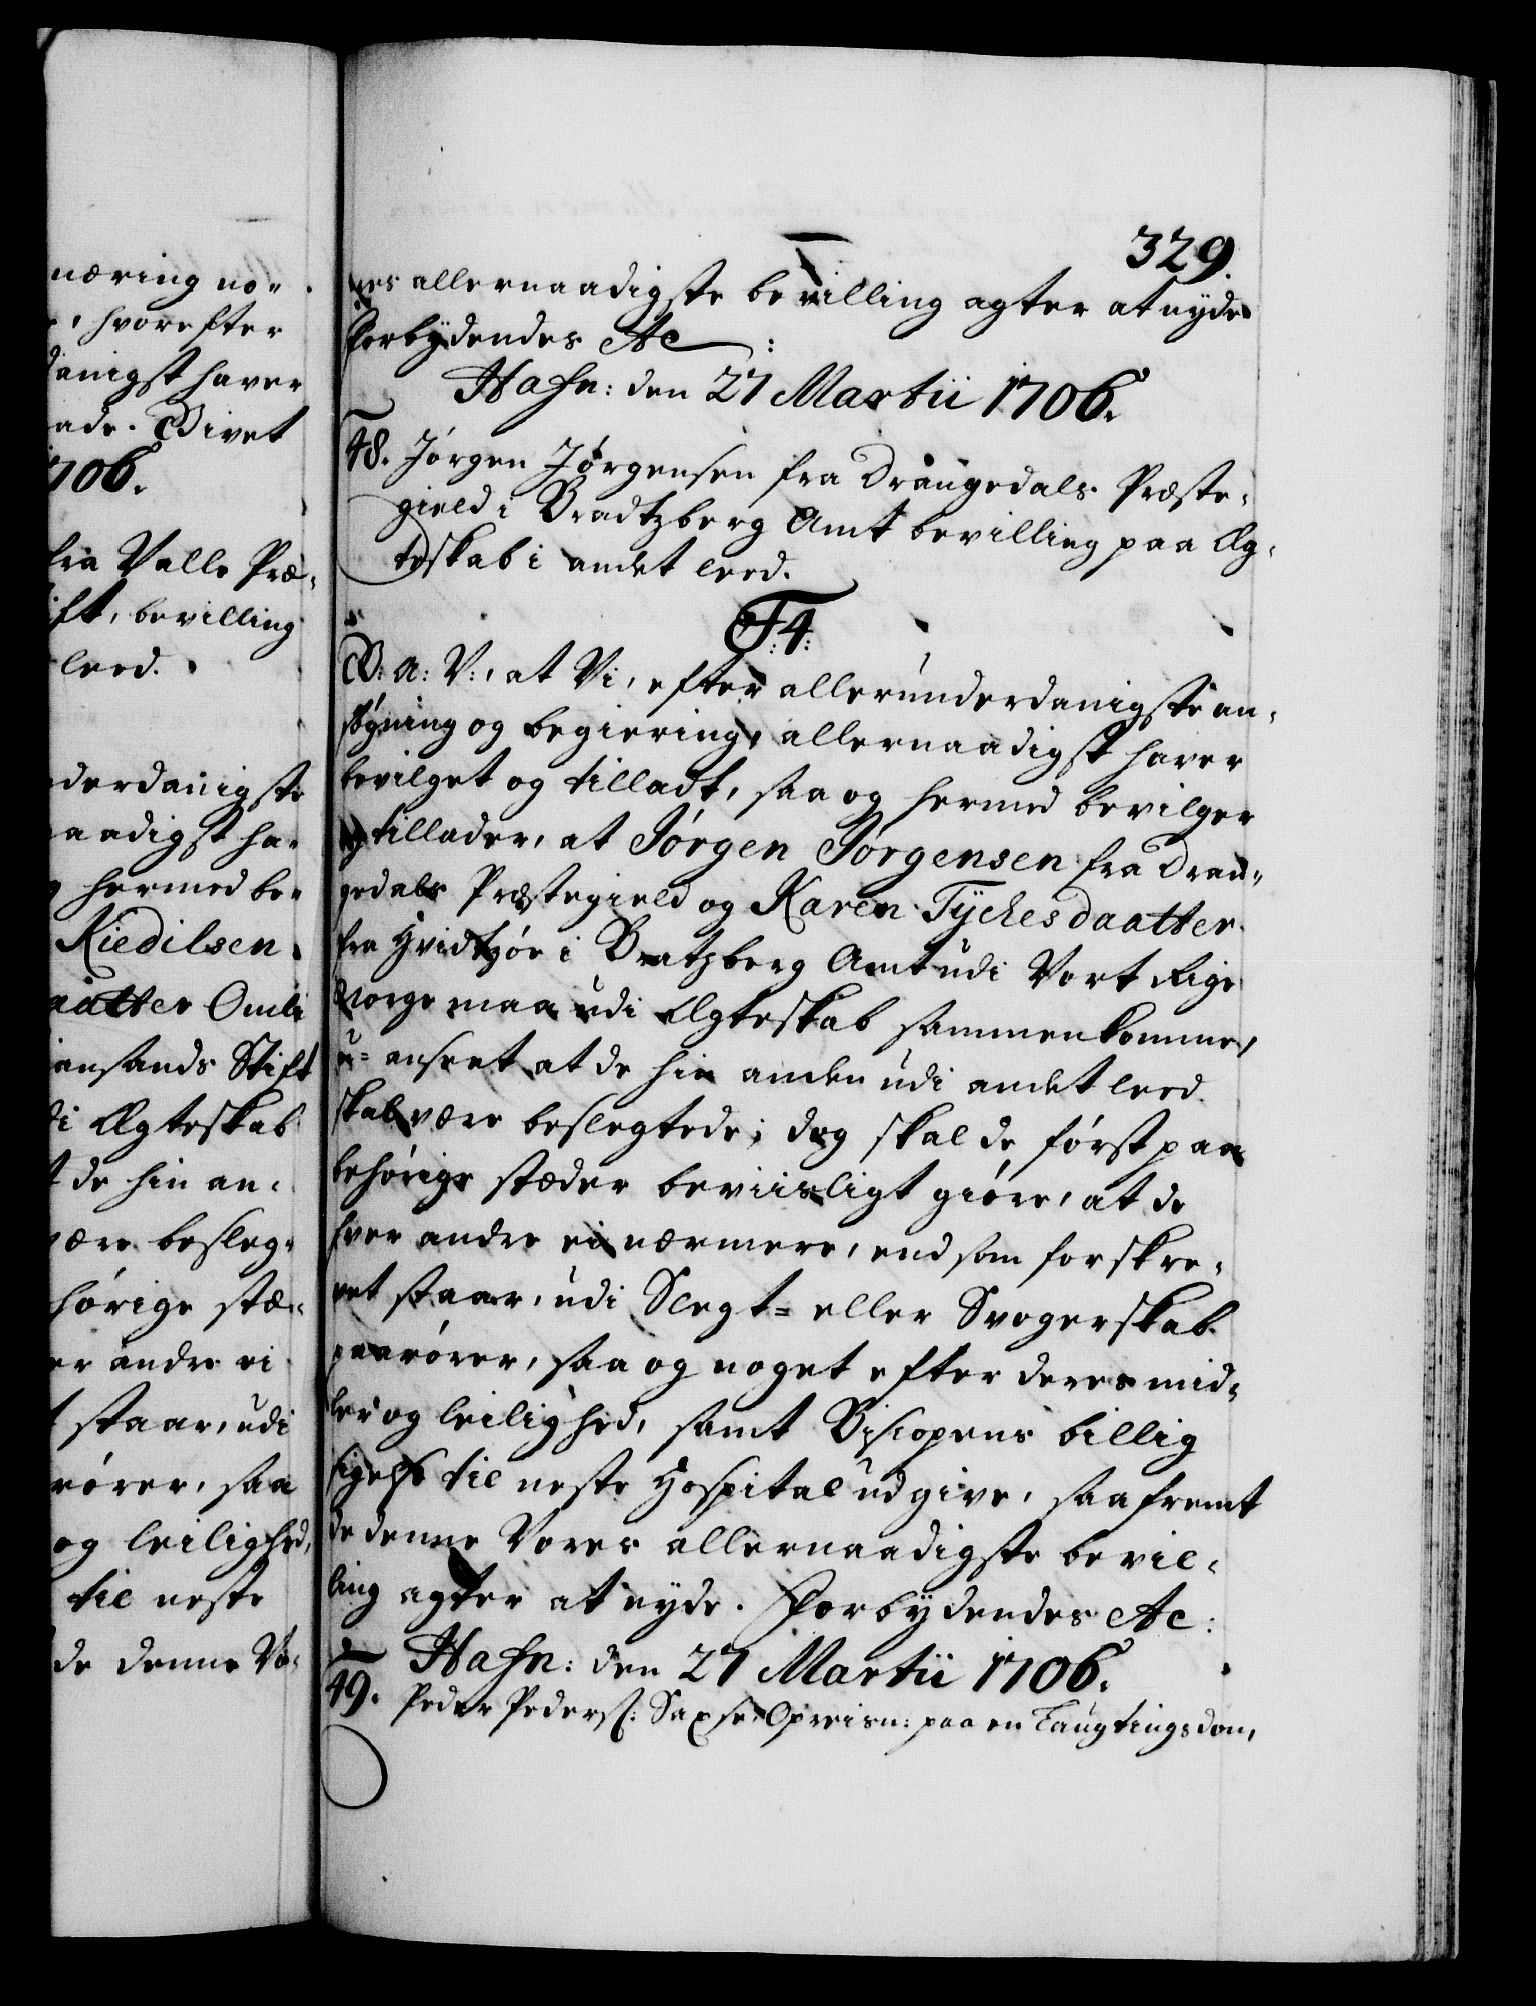 næring no-
, hvorefter
danigst haver
ade. Givet
1706.
fra Valle Præ-
ift, bevilling
leed.
derdanigste
aadigst ha-
hermed be-
Kiedilsen
aatter Omli
iansands Stift
di Ægteskab
t de hin an-
være besleg-
hörige stæ-
er andre ei
t staar, udi
rörer, saa
og leilighed,
til neste
de denne Vo-
329.
res allernaadigste bevilling agter at nyde
Forbydendes Etc:
Hafn: den 27 Martii 1706.
48. Jørgen Jørgensen fra Draugedals Præste-
gield i Bradtzberg Amt bevilling paa Æg-
teskab i andet leed.
F: 4:
G: A: V:, at Vi, efter allerunderdanigste an-
søgning og begiering, allernaadigst haver
bevilget og tilladt, saa og hermed bevilger
og tillader, at Jørgen Jørgensen fra Drau-
gedals Præstegield og Karen Tÿchesdaatter
fra Hvidtzöe i Bratzberg Amt udi Vort Rige
Norge maa udi Ægteskab sammenkomme,
u-anseet at de hin anden udi andet leed
skal være beslegtede; dog skal de först paa
behörige stæder beviisligt giöre, at de
hver andre ei nærmere, end som forskre-
vet staar, udi Slegt- eller Svogerskab
paarörer, saa og noget efter deres mid-
ler og leilighed, samt Biscopens billig
sigelse til neste Hospital udgive, saafremt
de denne Vores allernaadigste bevil-
ling agter at nyde. Forbydendes Etc:
Hafn: den 27 Martii 1706.
49. Peder Peders: Saxse Opreisn: paa en Laugtingsdom,